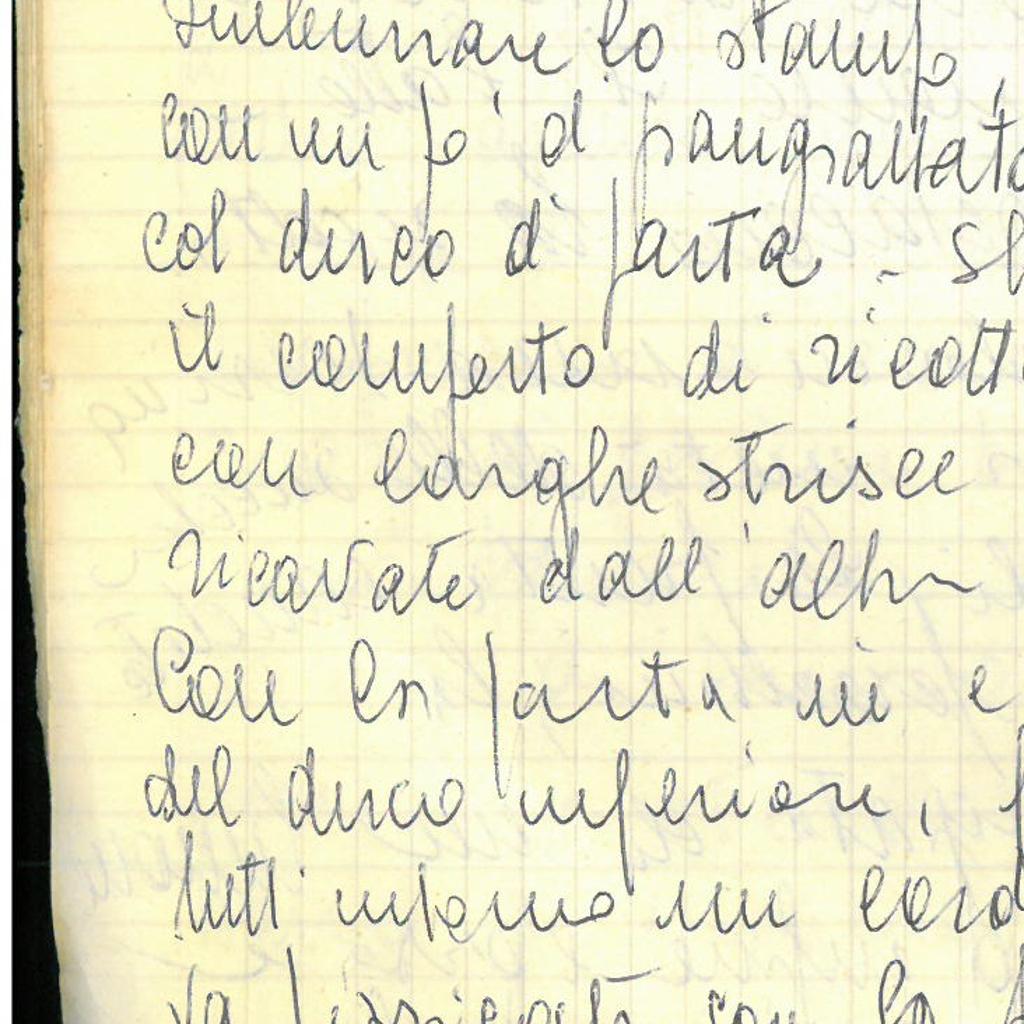 Imburrare lo stampo,
con un po' di pangrattato
col disco di pasta - 
il composto di ricotta
con larghe strisce
ricavate dall'altra
Con la pasta in e
del disco inferiore,
tutt'intorno un cord
va pizzicato con la